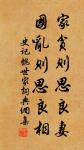 家貧則思良妻
國亂則思良相
史記魏世家詞典網集